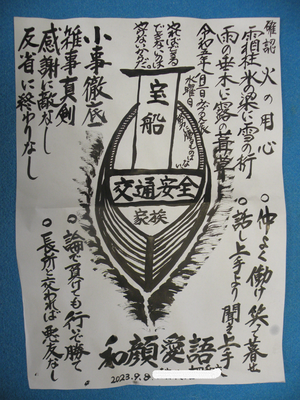 確認 火の用心
霜柱氷の梁に雪の桁
雨の垂木に露の葺草
令和五年
水曜日
やればできる
小事徹底
雑事真剣
感謝に敵なし
反省に終りなし
宝船
交通安全
家族
○仲よく働け笑って暮せ
○話し上手より聞き上手
○論で負けても行いで勝て
○長所と交われば悪友なし
和顔愛語
2023.9.8